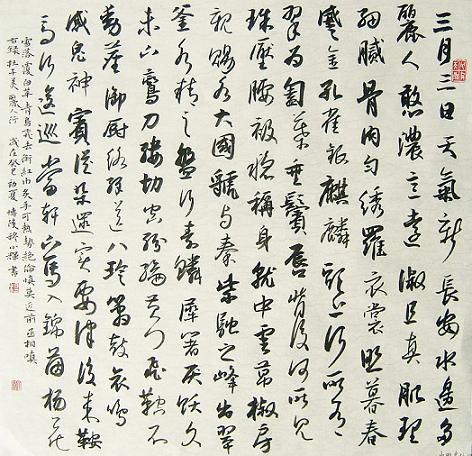 三月三日天氣新長安水邊多
麗人態濃意遠淑且真肌理
細膩骨肉勻繡羅衣裳照暮春
蹙金孔雀銀麒麟頭上何所有
翠為匎葉垂鬢唇背後何所見
珠壓腰衱穩稱身就中雲幕椒房
親賜名大國虢與秦紫駝之峰出翠
釜水精之盤行素鱗犀箸厭飫久
未下鸞刀縷切空紛綸黃門飛鞚不
動塵御廚絡繹送八珍簫鼓哀鳴
感鬼神賓從雜遝實要津後來鞍
馬何逡巡當軒下馬入錦茵楊花
雪落覆白蘋青鳥飛去銜紅巾炙手可熱勢絕倫慎莫近前丞相嗔
右錄杜子美麗人行 歲在癸巳初夏 小 書